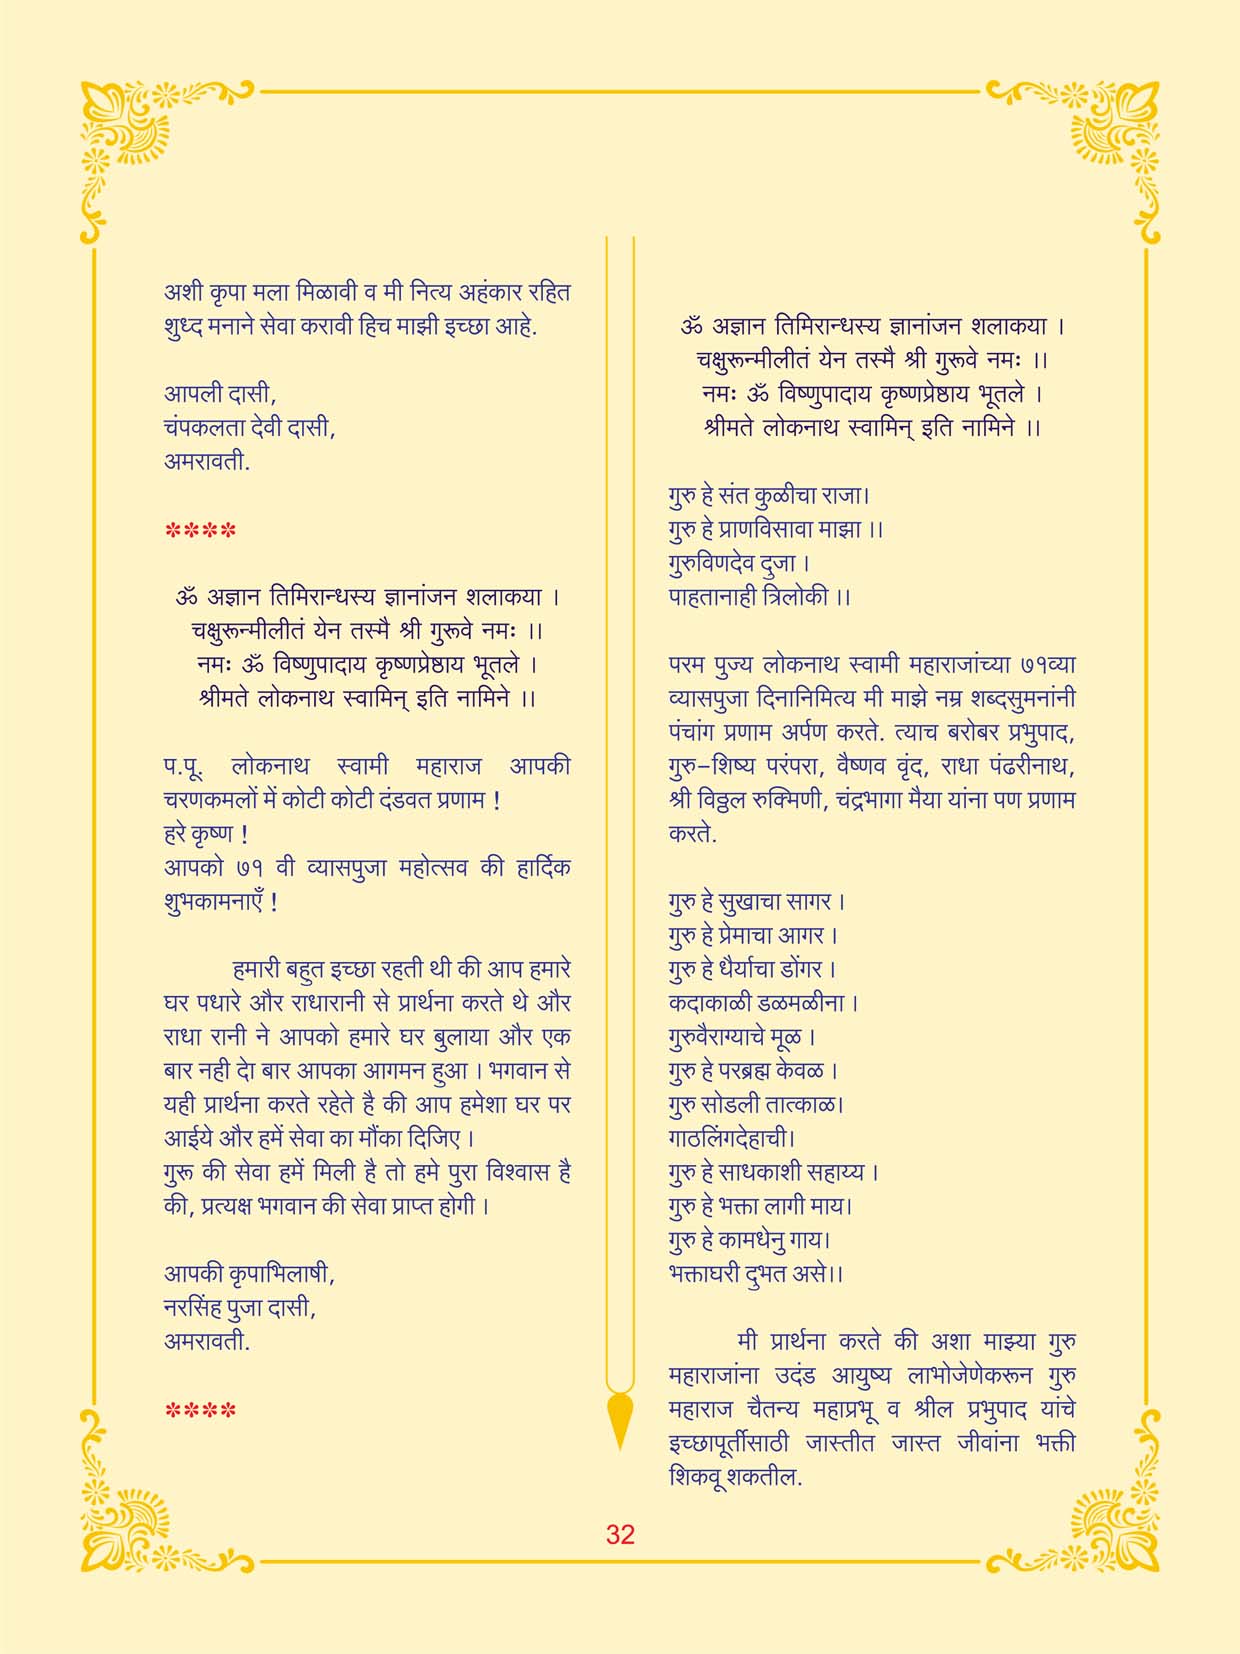 अशी कृपा मला मिळावी व मी नित्य अहंकार रहित
शुध्द मनाने सेवा करावी हिच माझी इच्छा आहे.
आपली दासी,
चंपकलता देवी दासी,
अमरावती.
****
ॐ अज्ञान तिमिरान्धस्य ज्ञानांजन शलाकया ।
चक्षुरून्मीलीतं येन तस्मै श्री गुरूवे नमः ।।
नमः ॐ विष्णुपादाय कृष्णप्रेष्ठाय भूतले ।
श्रीमते लोकनाथ स्वामिन् इति नामिने ।।
प.पू. लोकनाथ स्वामी महाराज आपकी
चरणकमलों में कोटी कोटी दंडवत प्रणाम !
हरे कृष्ण !
आपको ७१ वी व्यासपुजा महोत्सव की हार्दिक
शुभकामनाएँ !
हमारी बहुत इच्छा रहती थी की आप हमारे
घर पधारे और राधारानी से प्रार्थना करते थे और
राधा रानी ने आपको हमारे घर बुलाया और एक
बार नही देा बार आपका आगमन हुआ । भगवान से
यही प्रार्थना करते रहेते है की आप हमेशा घर पर
आईये और हमें सेवा का मौंका दिजिए ।
गुरू की सेवा हमें मिली है तो हमे पुरा विश्वास है
की, प्रत्यक्ष भगवान की सेवा प्राप्त होगी ।
आपकी कृपाभिलाषी,
नरसिंह पुजा दासी,
अमरावती.
****
ॐ अज्ञान तिमिरान्धस्य ज्ञानांजन शलाकया ।
चक्षुरून्मीलीतं येन तस्मै श्री गुरूवे नमः ।।
नमः ॐ विष्णुपादाय कृष्णप्रेष्ठाय भूतले ।
श्रीमते लोकनाथ स्वामिन् इति नामिने ।।
गुरु हे संत कुळीचा राजा।
गुरु हे प्राणविसावा माझा ।।
गुरुविणदेव दुजा ।
पाहतानाही त्रिलोकी ।।
परम पुज्य लोकनाथ स्वामी महाराजांच्या ७१व्या
व्यासपुजा दिनानिमित्य मी माझे नम्र शब्दसुमनांनी
पंचांग प्रणाम अर्पण करते. त्याच बरोबर प्रभुपाद,
गुरु-शिष्य परंपरा, वैष्णव वृंद, राधा पंढरीनाथ,
श्री विठ्ठल रुक्मिणी, चंद्रभागा मैया यांना पण प्रणाम
करते.
गुरु हे सुखाचा सागर ।
गुरु हे प्रेमाचा आगर ।
गुरु हे धैर्याचा डोंगर ।
कदाकाळी डळमळीना ।
गुरुवैराग्याचे मूळ ।
गुरु हे परब्रह्म केवळ ।
गुरु सोडली तात्काळ।
गाठलिंगदेहाची।
गुरु हे साधकाशी सहाय्य ।
गुरु हे भक्ता लागी माय।
गुरु हे कामधेनु गाय।
भक्ताघरी दुभत असे।।
मी प्रार्थना करते की अशा माझ्या गुरु
महाराजांना उदंड आयुष्य लाभोजेणेकरून गुरु
महाराज चैतन्य महाप्रभू व श्रील प्रभुपाद यांचे
इच्छापूर्तीसाठी जास्तीत जास्त जीवांना भक्ती
शिकवू शकतील.
32